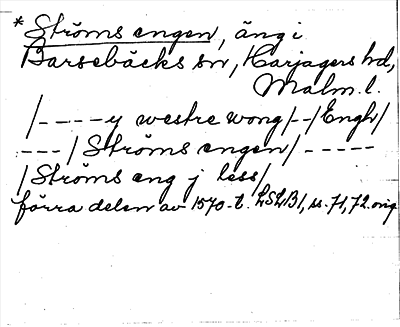 * Ströms engen, äng i
Barsebäcks sn, Harjagers hd,
Malm. l.
/----y westre wong/--/Engh/
---/Ströms engen/-----
/Ströms eng j less/
förra delen av 1570-t. LSLB1, ss. 71, 72. orig